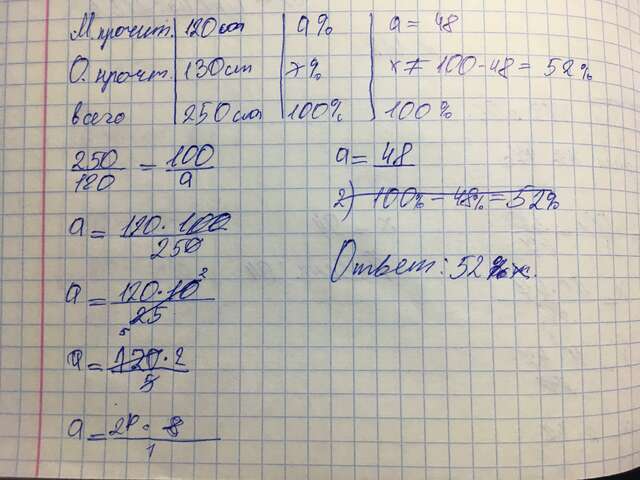 М. прочит. 120 см a% a = 48
О. прочит. 130 см x% x = 100 - 48 = 52%
всего 250 см 100% 100%
250/120 = 100/a
a = 120 · 100/250
a = 120 · 10/25
a = 120 · 2/5
a = 24 · 2/1
a = 48
2) 100% - 48% = 52%
Ответ: 52%